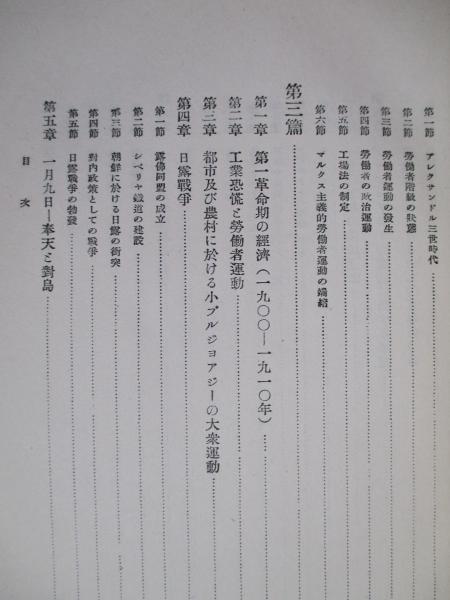 第一節 アレクサンドル三世時代
第二節 勞働者階級の狀態
第三節 勞働者運動の發生
第四節 勞働者の政治運動
第五節 工場法の制定
第六節 マルクス主義的勞働者運動の端緒
第三篇
第一章 第一革命期の經濟(一九〇〇―一九一〇年)
第二章 工業恐慌と勞働者運動
第三章 都市及び農村に於ける小ブルジョアジーの大衆運動
第四章 日露戰爭
第一節 露佛同盟の成立
第二節 シベリヤ鐵道の建設
第三節 朝鮮に於ける日露の衝突
第四節 對內政策としての戰爭
第五節 日露戰爭の勃發
第五章 一月九日―奉天と對島
目次